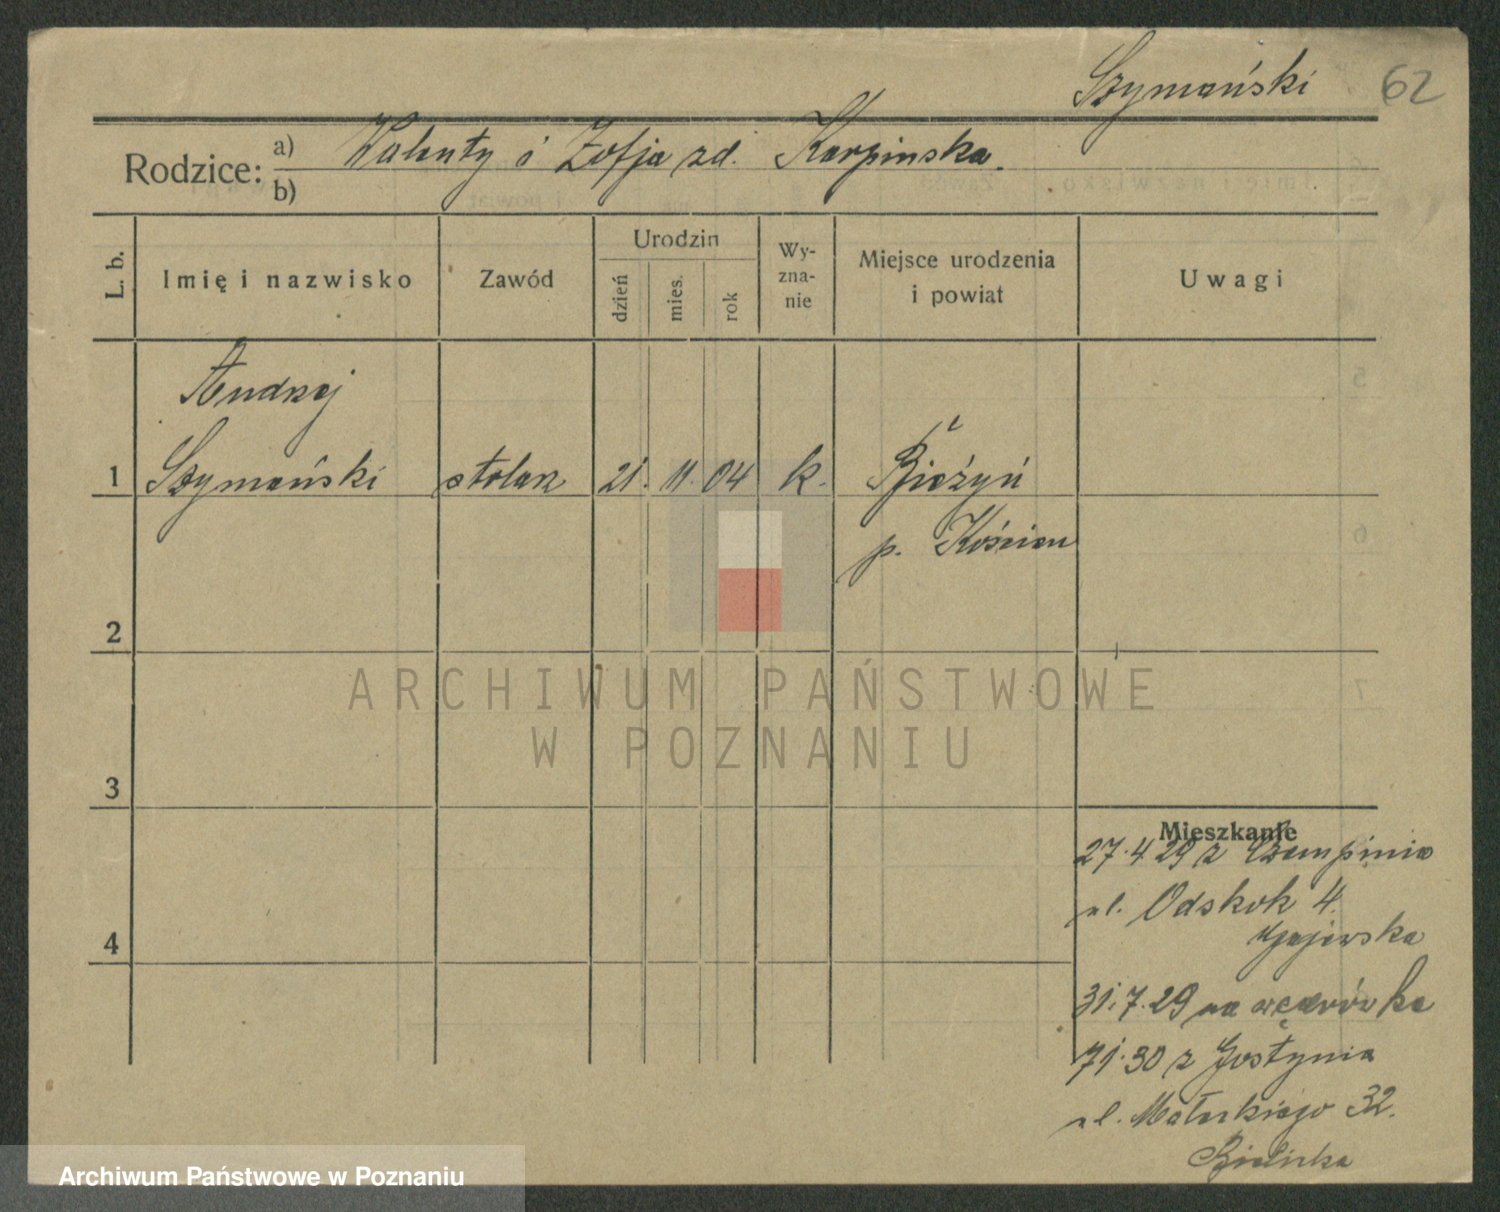 Szymański 62
Rodzice: a) Walenty i Zofja zd. Karpinska.
b)
L. b. Imię i nazwisko Zawód Urodzin dzień mies. rok Wy-zna-nie Miejsce urodzenia i powiat Uwagi
Andrzej
1 Szymański stolarz 21. 11. 04 k. Bieżyń
p. Kościan
2
ARCHIWUM PAŃSTWOWE
W POZNANIU
3
Mieszkanie
27.4 29 z Czempinia
ul. Odskok 4.
Gajewska
4
31.7.29 na wędrówka
71.30 z Gostynia
ul. Małeckiego 32.
Bielicka
Archiwum Państwowe w Poznaniu